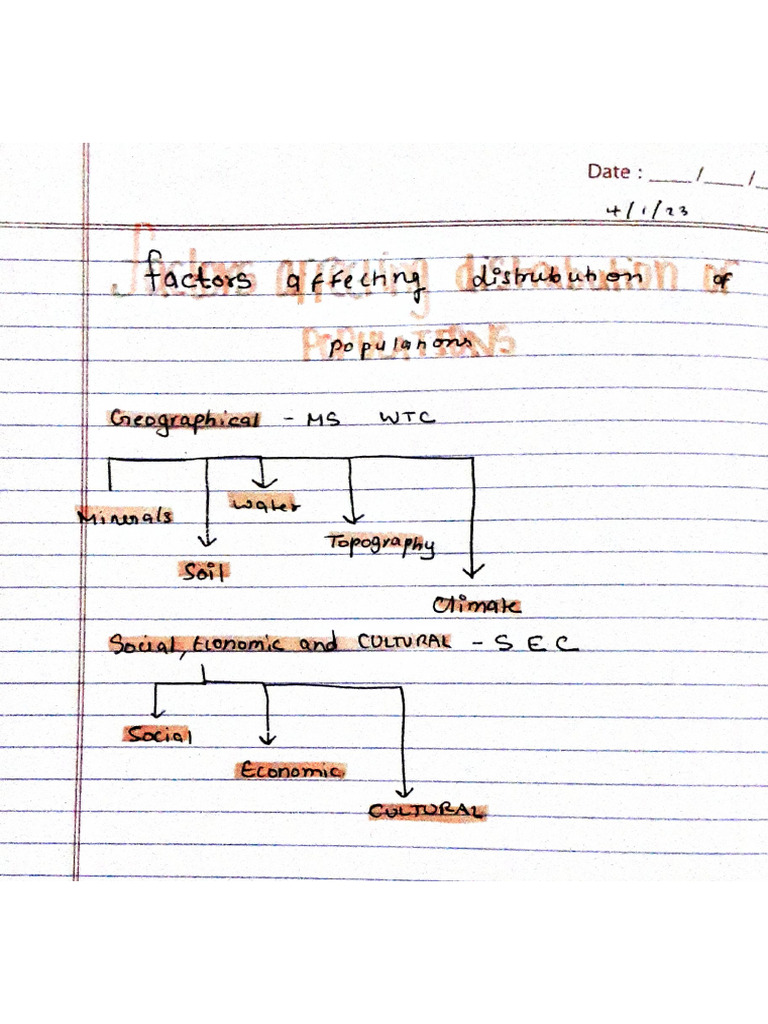 Date : ___/___/_
4/1/23
factors affecting distribution of
populations
Geographical - MS WTC
Minerals
Water
Topography
Soil
Climate
Social, Economic and CULTURAL - S E C
Social
Economic
CULTURAL